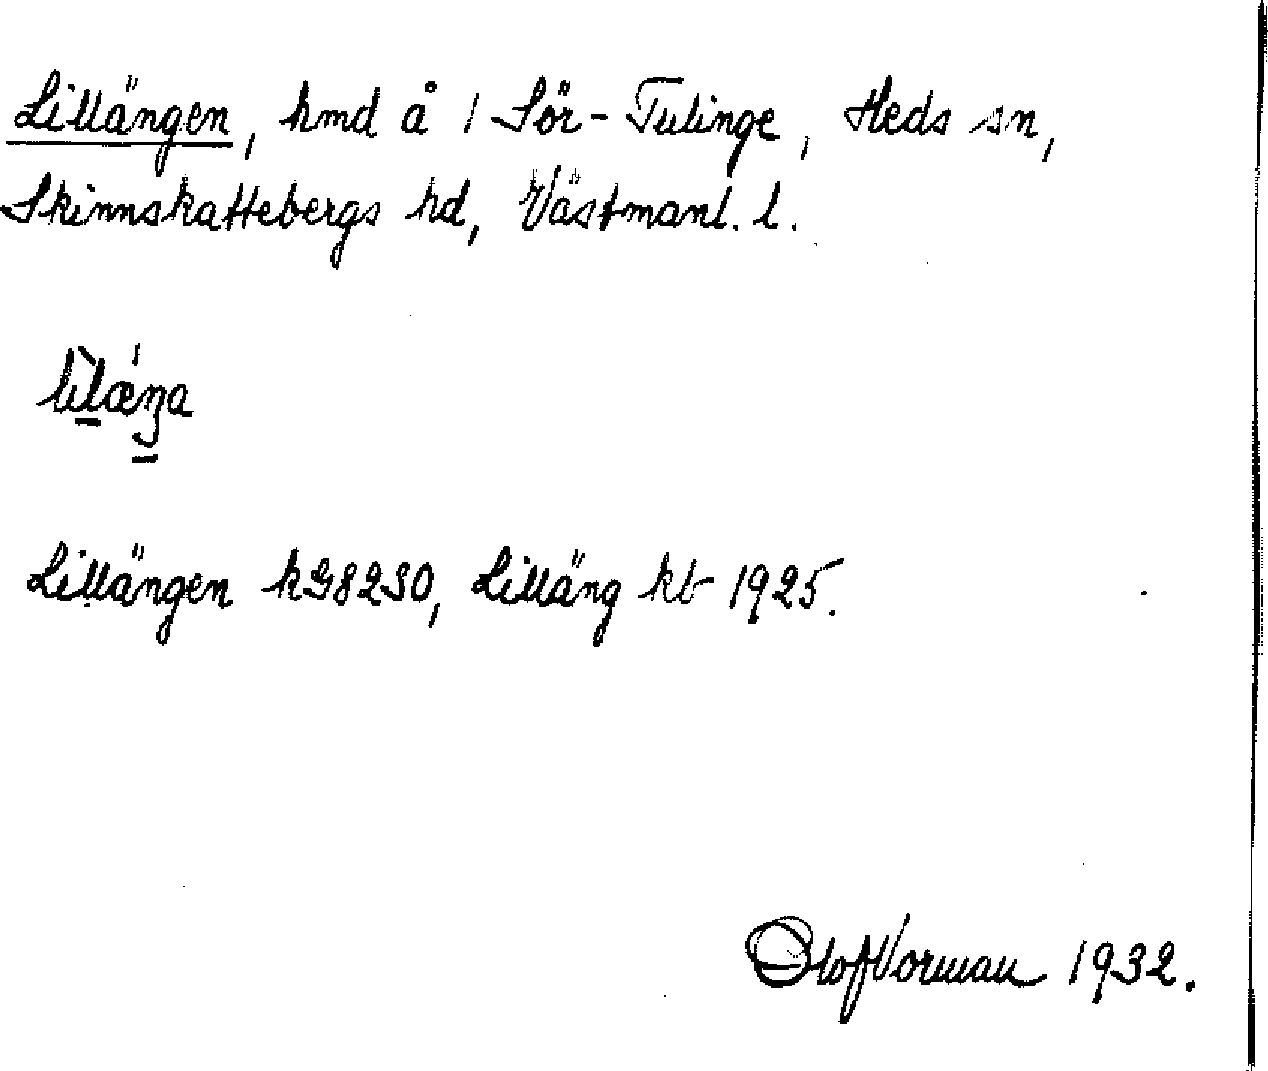 Lillängen, hmd å 1 Sör-Tulinge, Heds sn,
Skinnskattebergs hd, Västmanl. l.
Lillängen kG8230, Lilläng kb 1925.
Olof Vorman 1932.